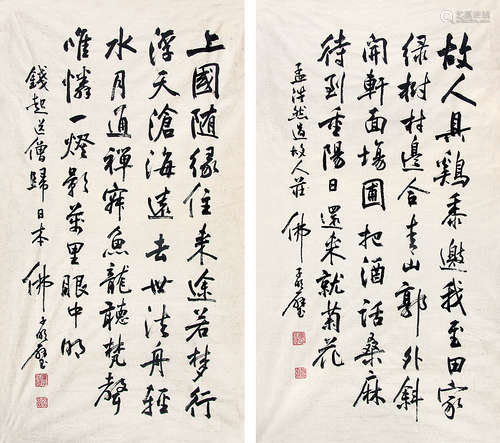 故人具鷄黍邀我至田家
绿樹村邊合青山郭外斜
開軒面場圃把酒話桑麻
待到重陽日還来就菊花
孟浩然過故人莊
佛
上國随縁住来途若夢行
浮天滄海遠去世法舟輕
水月通禅寂魚龍聽梵聲
唯憐一燈影萬里眼中明
錢起送僧歸日本
佛